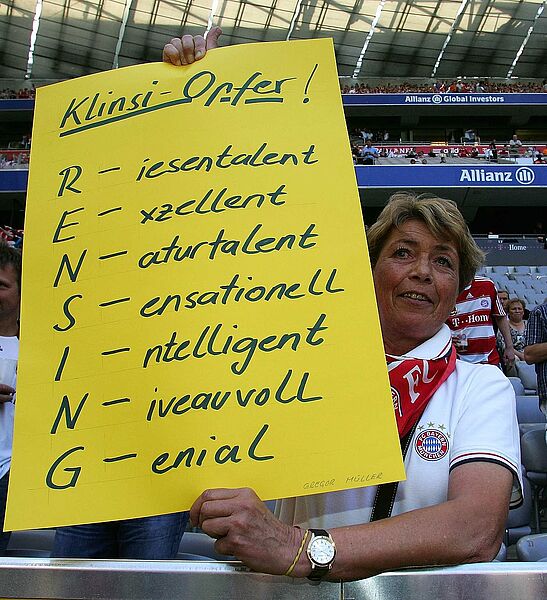 Klinsi-Opfer!
R - iesentalent
E - xzellent
N - aturtalent
S - ensationell
I - ntelligent
N - iveauvoll
G - enial
GREGOR MÜLLER
Allianz Global Investors
Allianz
T··Home
T··Home
FC
FC BAYERN
MÜNCHEN